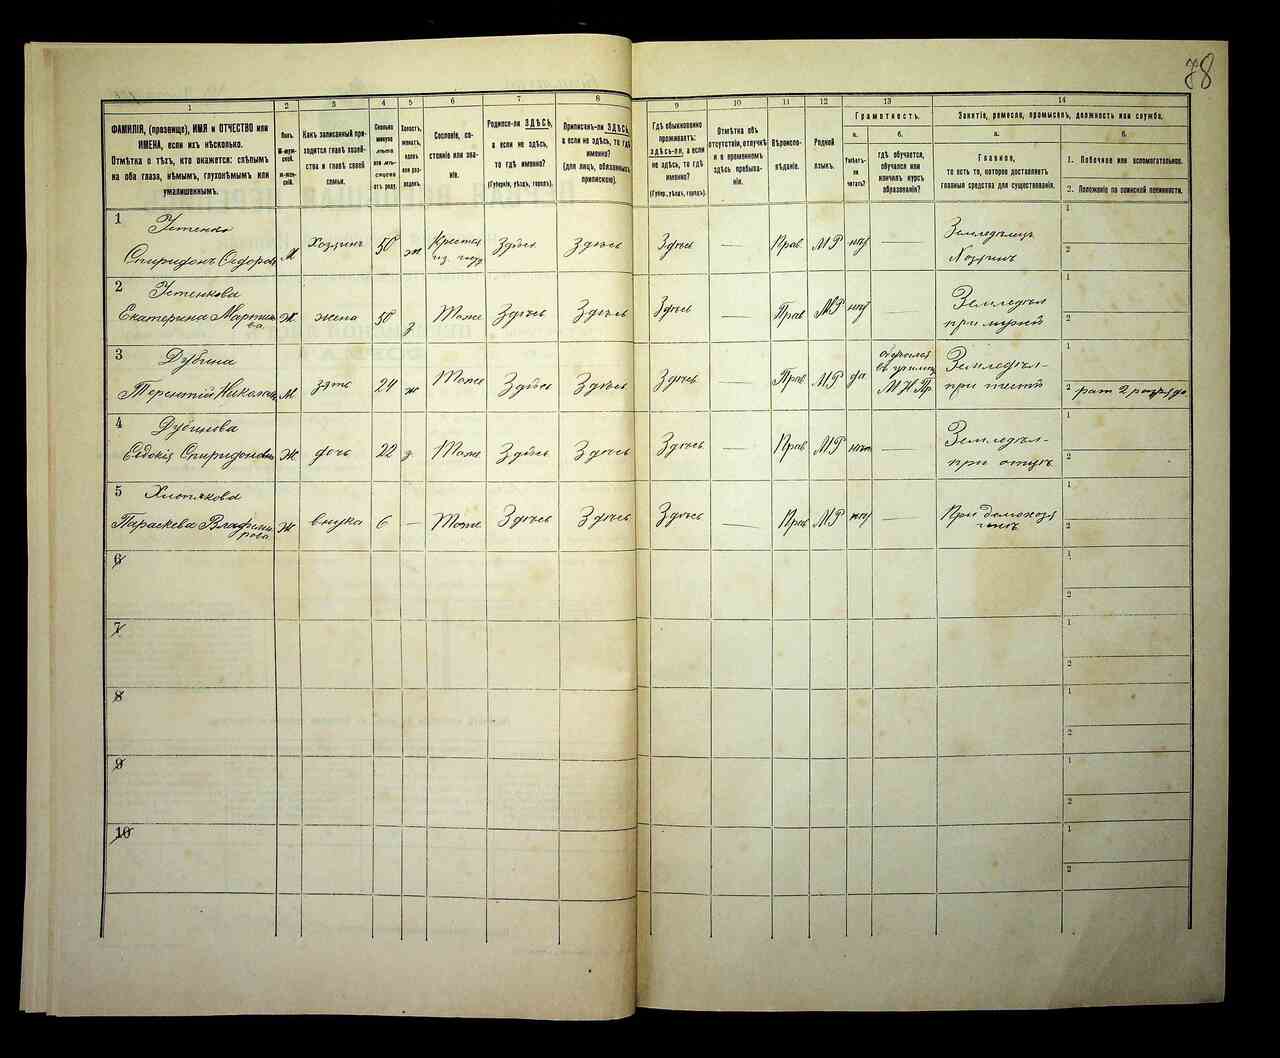 78
1
2
3
4
5
6
7
8
9
10
11
12
13
14
ФАМИЛІЯ, (прозвище), ИМЯ и ОТЧЕСТВО или
ИМЕНА, если ихъ нѣсколько.
Отмѣтка о тѣхъ, кто окажется: слѣпымъ
на оба глаза, нѣмымъ, глухонѣмымъ или
умалишеннымъ.
Полъ.
М-мужской.
Ж-женскій.
Какъ записанный при-
ходится главѣ хозяй-
ства и главѣ своей
семьи.
Сколько
минуло
лѣтъ
или мѣ-
сяцевъ
отъ роду.
Холостъ,
женатъ,
вдовъ
или раз-
веденъ.
Сословіе, со-
стояніе или зва-
ніе.
Родился-ли ЗДѢСЬ,
а если не здѣсь,
то гдѣ именно?
(Губернія, уѣздъ, городъ).
Приписанъ-ли ЗДѢСЬ,
а если не здѣсь, то гдѣ
именно?
(Для лицъ, обязанныхъ
припискою).
Гдѣ обыкновенно
проживаетъ:
здѣсь-ли, а если
не здѣсь, то гдѣ
именно?
(Губер., уѣздъ, городъ).
Отмѣтка объ
отсутствіи, отлучкѣ
и о временномъ
здѣсь пребыва-
ніи.
Вѣроиспо-
вѣданіе.
Родной
языкъ.
Грамотность.
а.
Умѣетъ-
ли
читать?
б.
гдѣ обучается,
обучался или
кончилъ курсъ
образованія?
Занятіе, ремесло, промыселъ, должность или служба.
а.
Главное,
то есть то, которое доставляетъ
главныя средства для существованія.
б.
1. Побочное или вспомогательное.
2. Положеніе по воинской повинности.
1
Устенко
Спиридонъ Сидоров
М
Хозяинъ
50
ж
Крестья
Здѣсь
Здѣсь
Здѣсь
—
Прав
МР
нѣт
—
Земледѣлецъ
Хозяинъ
1
2
2
Устенкова
Екатерина Мартинова
Ж
жена
50
з
Тоже
Здѣсь
Здѣсь
Здѣсь
—
Прав
МР
нѣт
—
Земледѣл
при мужѣ
1
2
3
Дубина
Терентій Николаев
М
зять
24
ж
Тоже
Здѣсь
Здѣсь
Здѣсь
—
Прав
МР
да
обучался
въ училищ
М Н Пр
Земледѣл-
при тестѣ
1
2
рат 2 разряда
4
Дубинова
Евдокія Спиридонова
Ж
дочь
22
з
Тоже
Здѣсь
Здѣсь
Здѣсь
—
Прав
МР
нѣт
—
Земледѣл-
при отцѣ
1
2
5
Хлопякова
Параскева Владими
рова
Ж
внука
6
—
Тоже
Здѣсь
Здѣсь
Здѣсь
—
Прав
МР
нѣт
—
При домохозя
инѣ
1
2
6
1
2
7
1
2
8
1
2
9
1
2
10
1
2